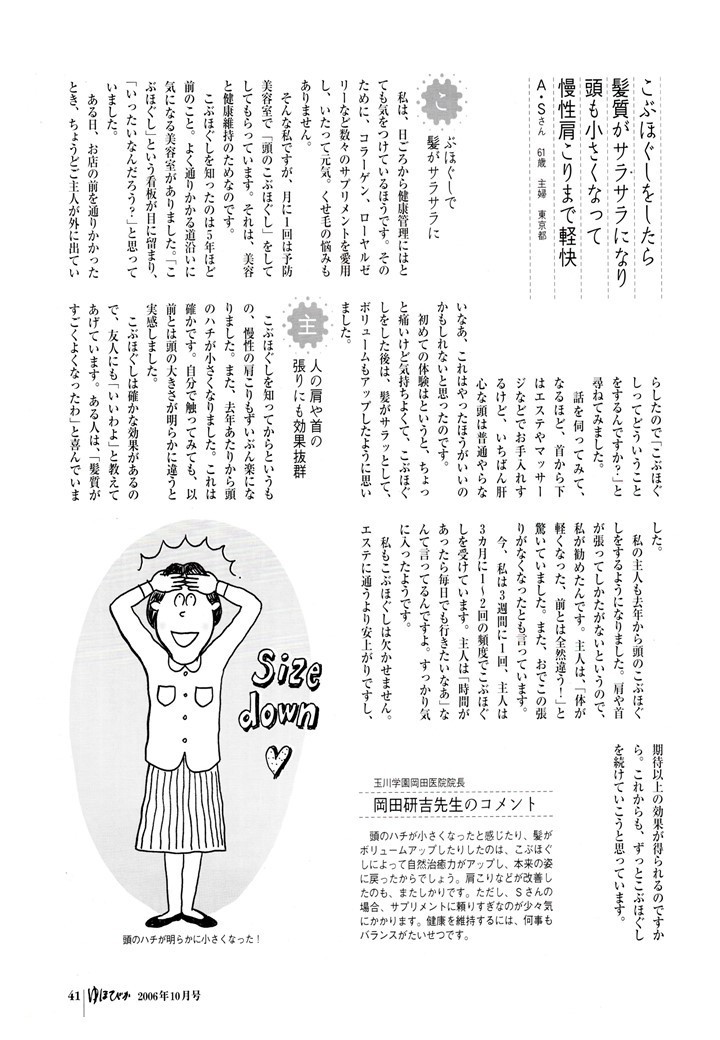 こぶほぐしをしたら
髪質がサラサラになり
頭も小さくなって
慢性肩こりまで軽快
A・Sさん 61歳 主婦 東京都
こぶほぐしで
髪がサラサラに
私は、日ごろから健康管理にはと
ても気をつけているほうです。その
ために、コラーゲン、ローヤルゼ
リーなど数々のサプリメントを愛用
し、いたって元気。くせ毛の悩みも
ありません。
そんな私ですが、月に1回は予防
美容室で「頭のこぶほぐし」をして
してもらっています。それは、美容
と健康維持のためなのです。
こぶほぐしを知ったのは5年ほど
前のこと。よく通りかかる道沿いに
気になる美容室がありました。「こ
ぶほぐし」という看板が目に留まり、
「いったいなんだろう？」と思って
いました。
ある日、お店の前を通りかかった
とき、ちょうどご主人が外に出てい
らしたので「こぶほぐ
しってどういうこと
をするんですか？」と
尋ねてみました。
話を伺ってみて、
なるほど、首から下
はエステやマッサー
ジなどでお手入れす
るけど、いちばん肝
心な頭は普通やらな
いなあ、これはやったほうがいいの
かもしれないと思ったのです。
初めての体験はというと、ちょっ
と痛いけど気持ちよくて、こぶほぐ
しをした後は、髪がサラッとして、
ボリュームもアップしたように思い
ました。
主人の肩や首の
張りにも効果抜群
こぶほぐしを知ってからというも
の、慢性の肩こりもずいぶん楽にな
りました。また、去年あたりから頭
のハチが小さくなりました。これは
確かです。自分で触ってみても、以
前とは頭の大きさが明らかに違うと
実感しました。
こぶほぐしは確かな効果があるの
で、友人にも「いいわよ」と教えて
あげています。ある人は、「髪質が
すごくよくなったわ」と喜んでいま
した。
私の主人も去年から頭のこぶほぐ
しをするようになりました。肩や首
が張ってしかたがないというので、
私が勧めたんです。主人は、「体が
軽くなった、前とは全然違う！」と
驚いていました。また、おでこの張
りがなくなったとも言っています。
今、私は3週間に1回、主人は
3カ月に1〜2回の頻度でこぶほぐ
しを受けています。主人は「時間が
あったら毎日でも行きたいなあ」な
んて言ってるんですよ。すっかり気
に入ったようです。
私もこぶほぐしは欠かせません。
エステに通うより安上がりですし、
期待以上の効果が得られるのですか
ら。これからも、ずっとこぶほぐし
を続けていこうと思っています。
Size
down
頭のハチが明らかに小さくなった！
玉川学園岡田医院院長
岡田研吉先生のコメント
頭のハチが小さくなったと感じたり、髪が
ボリュームアップしたりしたのは、こぶほぐ
しによって自然治癒力がアップし、本来の姿
に戻ったからでしょう。肩こりなどが改善し
たのも、またしかりです。ただし、Sさんの
場合、サプリメントに頼りすぎなのが少々気
にかかります。健康を維持するには、何事も
バランスがたいせつです。
41 ゆほびか 2006年10月号